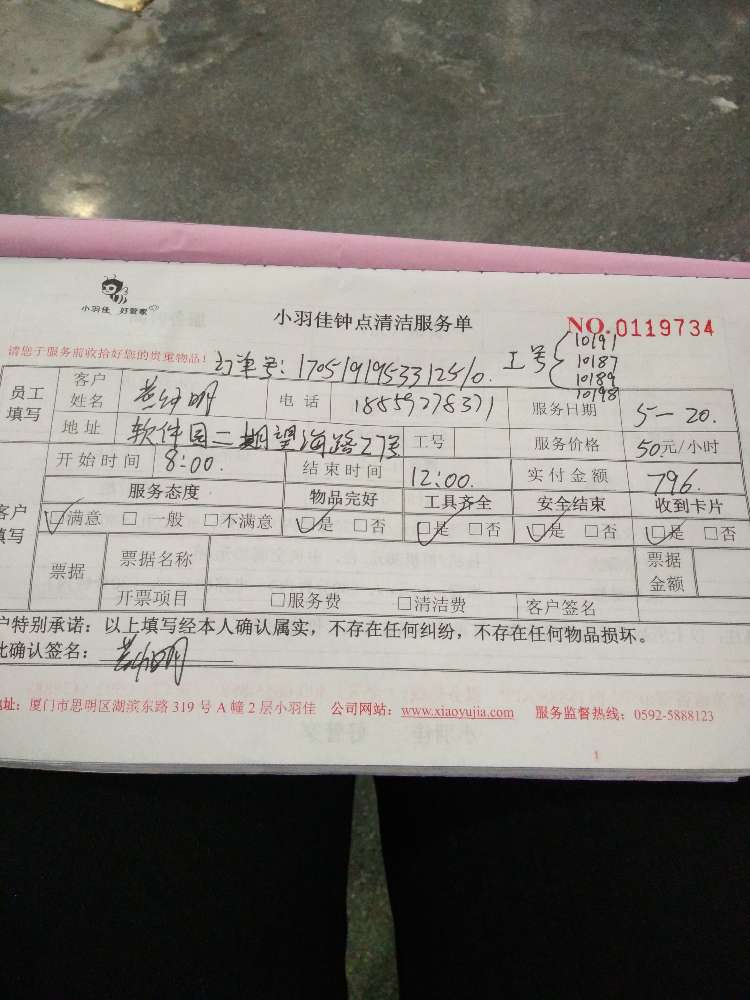 小羽佳 好管家
小羽佳钟点清洁服务单
NO.0119734
请您于服务前收拾好您的贵重物品！ 订单号：170519195331251/0. 工号 10191
10187
10189
10198
员工填写 客户姓名 明 电话 18859278371 服务日期 5-20.
地址 软件园二期望海路27号 工号 服务价格 50元/小时
开始时间 8:00. 结束时间 12:00. 实付金额 796.
客户填写 服务态度 物品完好 工具齐全 安全结束 收到卡片
☑满意 □一般 □不满意 ☑是 □否 ☑是 □否 ☑是 □否 ☑是 □否
票据 票据名称 票据金额
开票项目 □服务费 □清洁费 客户签名
户特别承诺：以上填写经本人确认属实，不存在任何纠纷，不存在任何物品损坏。
此确认签名： 明
地址：厦门市思明区湖滨东路319号A幢2层小羽佳 公司网站：www.xiaoyujia.com 服务监督热线：0592-5888123
1